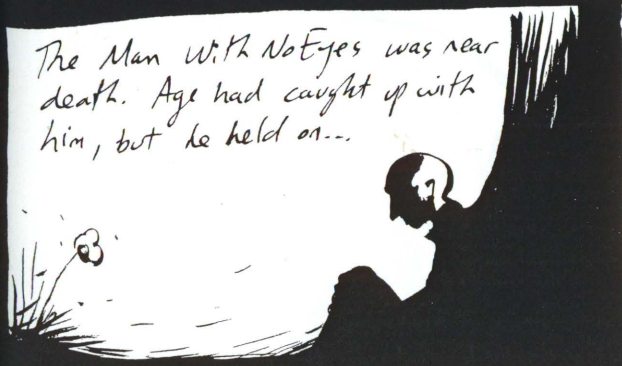 The Man With No Eyes was near
death. Age had caught up with
him, but he held on...